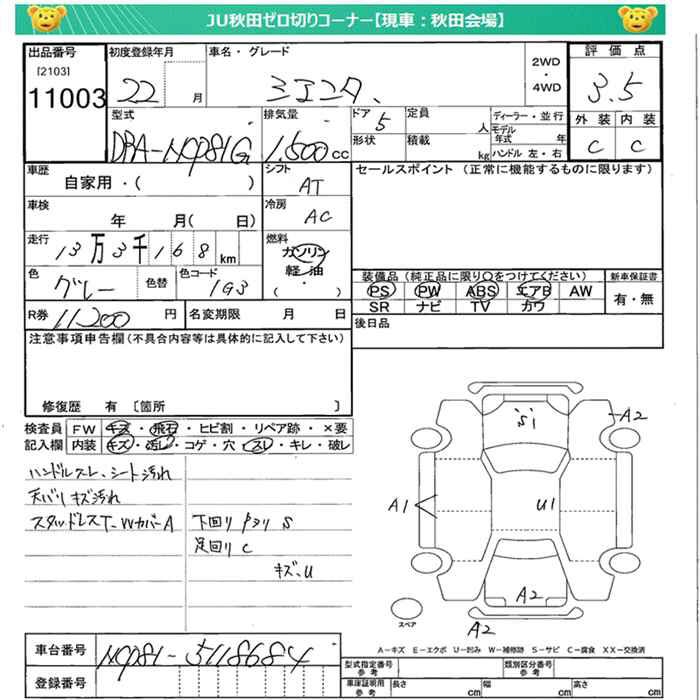 JU秋田ゼロ切りコーナー【現車：秋田会場】
出品番号
[2103]
11003
初度登録年月
22 月
車名・グレード
シエンタ
2WD
・
4WD
評価点
3.5
外装 内装
C C
型式
DBA-NCP81G
排気量
1,500cc
ドア
5
形状
定員
人
積載
kg
ディーラー・並行
モデル年式 年
ハンドル 左・右
車歴
自家用・( )
シフト
AT
セールスポイント (正常に機能するものに限ります)
車検
年 月( 日)
冷房
AC
走行
13万3千168km
燃料
ガソリン
軽・油
( ・ )
色
グレー
色替
色コード
1G3
装備品(純正品に限り○をつけてください)
PS PW ABS エアB AW
SR ナビ TV カワ
新車保証書
有・無
R券
11,200円
名変期限 月 日
後日品
注意事項申告欄(不具合内容等は具体的に記入して下さい)
修復歴 有 〔箇所 〕
検査員記入欄
FW キズ・飛石・ヒビ割・リペア跡・×要
内装 キズ・汚レ・コゲ・穴・スレ・キレ・破レ
ハンドルスレ、シート汚れ
天バリ キズ汚れ
スタッドレスT-WカバーA
下回り S
足回り C
キズ、U
Si
A2
A1
U1
A2
A2
スペア
A-キズ E-エクボ U-凹み W-補修跡 S-サビ C-腐食 XX-交換済
車台番号
NCP81-5118684
登録番号
型式指定番号
参考
類別区分番号
参考
車庫証明用
参考
長さ cm
幅 cm
高さ cm